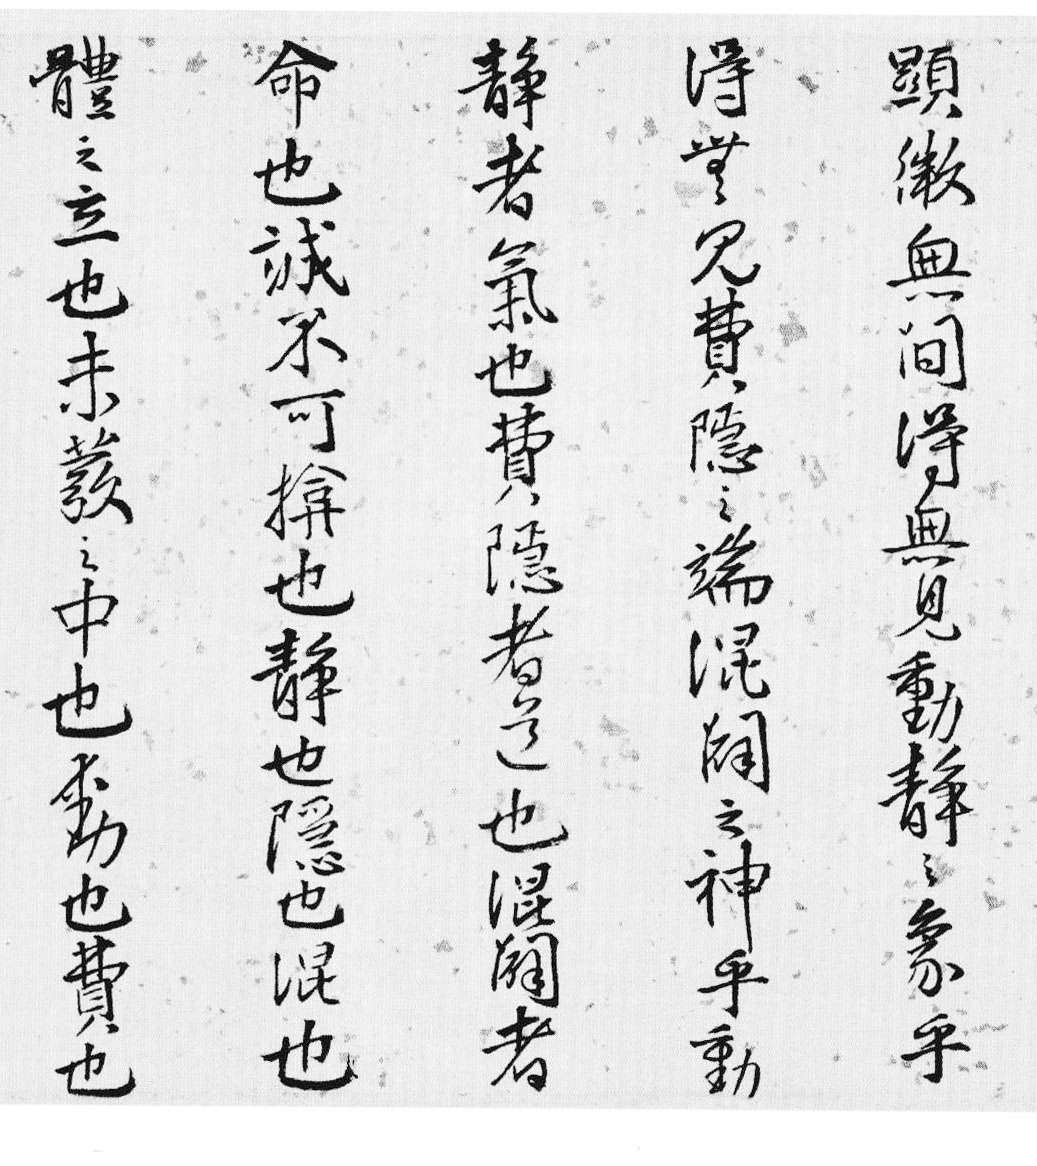 顯微無間得無見動靜之象乎
得無見費隱之端混闢之神乎動
靜者氣也費隱者道也混闢者
命也誠不可揜也靜也隱也混也
體之立也未發之中也動也費也